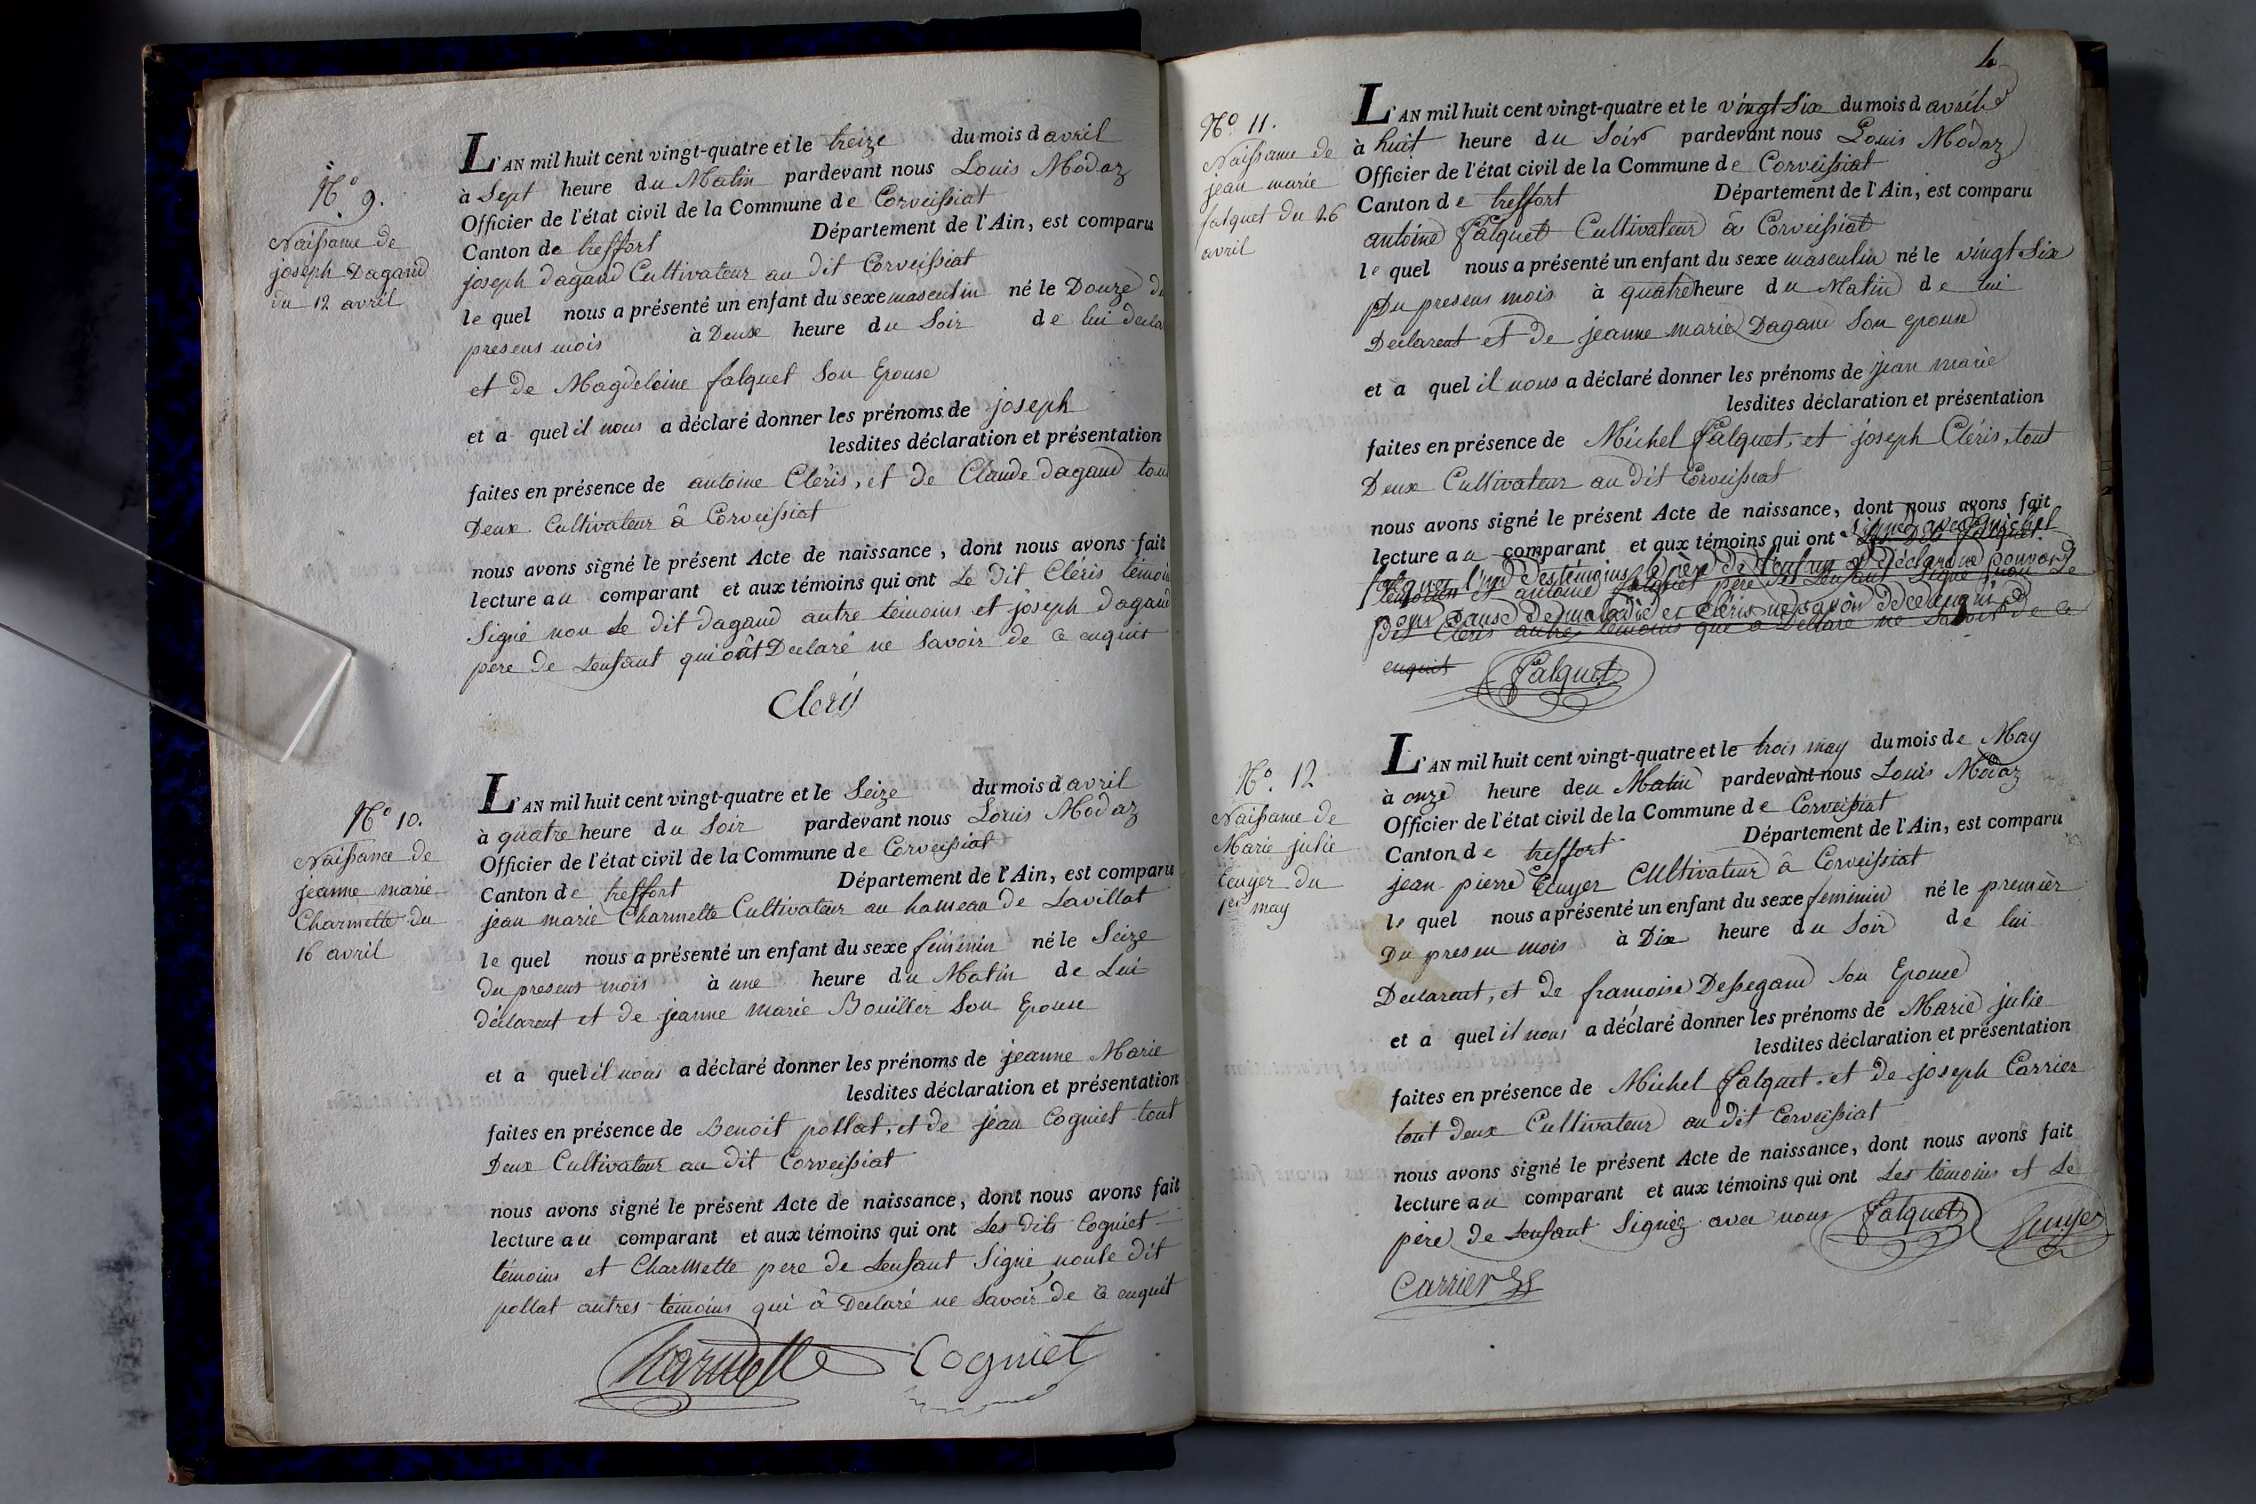 N.º 9.
Naissance de
joseph Dagand
du 12 avril
L'AN mil huit cent vingt-quatre et le treize du mois d avril
à Sept heure du Matin pardevant nous Louis Modaz
Officier de l'état civil de la Commune de Corveissiat
Canton de treffort Département de l'Ain, est comparu
joseph dagand Cultivateur au dit Corveissiat
le quel nous a présenté un enfant du sexe masculin né le Douze du
presens mois à Deux heure du Soir de lui decla
et de Magdeleine falquet Son Epouse
et a quel il nous a déclaré donner les prénoms de joseph
lesdites déclaration et présentation
faites en présence de antoine Cléris, et de Claude dagand tout
Deux Cultivateur â Corveissiat
nous avons signé le présent Acte de naissance, dont nous avons fait
lecture au comparant et aux témoins qui ont Le dit Cléris témoin
Signé non Le dit dagand autre témoins et joseph dagand
pere de Lenfant qui ont Declaré ne Savoir de ce enquis
Cleris
N.º 10.
Naissance de
jeanne marie
Charmette du
16 avril
L'AN mil huit cent vingt-quatre et le Seize du mois d avril
à quatre heure du Soir pardevant nous Louis Modaz
Officier de l'état civil de la Commune de Corveissiat
Canton de treffort Département de l'Ain, est comparu
jean marie Charmette Cultivateur au hameau de Lavillat
le quel nous a présenté un enfant du sexe féminin né le Seize
du presens mois à une heure du Matin de Lui
déclarent et de jeanne marie Bouiller Son Epouse
et a quel il nous a déclaré donner les prénoms de jeanne Marie
lesdites déclaration et présentation
faites en présence de Benoit pollat, et de jean Cogniet tout
Deux Cultivateur au dit Corveissiat
nous avons signé le présent Acte de naissance, dont nous avons fait
lecture au comparant et aux témoins qui ont Les dits Cogniet
témoins et Charmette pere de Lenfant Signé, non le dit
pollat autres témoins qui â Declaré ne Savoir de ce enquit
Charmette Cogniet
N.º 11.
Naissance de
jean marie
falquet du 26
avril
L'AN mil huit cent vingt-quatre et le vingt Six du mois d avril
à huit heure du Soir pardevant nous Louis Modaz
Officier de l'état civil de la Commune de Corveissiat
Canton de treffort Département de l'Ain, est comparu
antoine falquet Cultivateur â Corveissiat
le quel nous a présenté un enfant du sexe masculin né le vingt Six
Du presens mois à quatre heure du Matin de lui
Declarent et de jeanne marie Dagand Son epouse
et a quel il nous a déclaré donner les prénoms de jean marie
lesdites déclaration et présentation
faites en présence de Michel falquet, et joseph Cléris, tout
Deux Cultivateur au dit Corveissiat
nous avons signé le présent Acte de naissance, dont nous avons fait
lecture au comparant et aux témoins qui ont Signé avec Michel
falquet l'un des témoins le père de l'enfant
témoins et antoine falquet père de Lenfant Signé, non Le
pour cause de maladie et Cléris ne savoir de ce enquis
dit Cléris autre témoins qui a Déclaré ne Savoir de ce
enquis falquet
N.º 12
Naissance de
Marie julie
Ecuyer du
1er may
L'AN mil huit cent vingt-quatre et le trois may du mois de May
à onze heure deu Matin pardevant nous Louis Modaz
Officier de l'état civil de la Commune de Corveissiat
Canton de treffort Département de l'Ain, est comparu
jean pierre Ecuyer Cultivateur â Corveissiat
le quel nous a présenté un enfant du sexe feminin né le premier
Du presen mois à Dix heure du Soir de lui
Declarent, et de francoise Dessegand Son Epouse
et a quel il nous a déclaré donner les prénoms de Marie julie
lesdites déclaration et présentation
faites en présence de Michel falquet, et de joseph Carrier
tout deux Cultivateur au dit Corveissiat
nous avons signé le présent Acte de naissance, dont nous avons fait
lecture au comparant et aux témoins qui ont Les témoins et Le
père de Lenfant Signéz avec nous falquet Ecuyer
Carrier